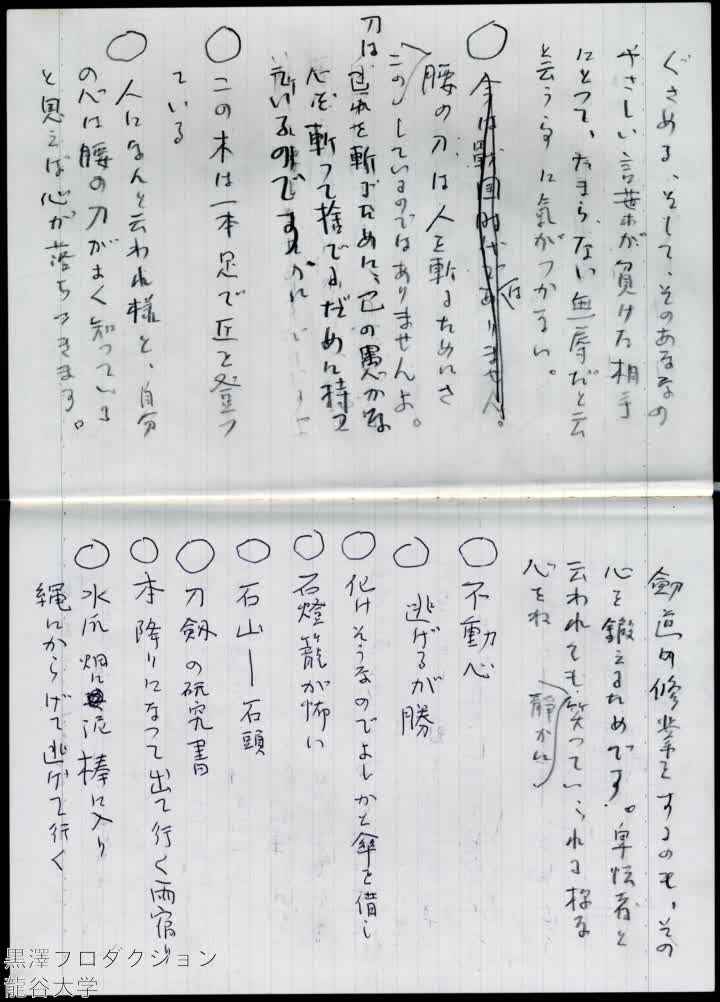 ぐさめる、そして、そのあなたの
やさしい言葉が負けた相手
にとって、たまらない無辱だと云
と云う事に氣がつかない。
○ 今は戰国時代ではありません。
腰の刀は人を斬るためにさ
(この)しているのではありませんよ。
刀は、己れを斬るために、己の愚かな
心を斬って捨てるために持って
いるのです
○ この木は一本足で立と
ている
○ 人になんと云われ様と、自分
の心は腰の刀がよく知っている
と思えば心が落ちつきます。
劔道の修業をするのも、その
心を鍛えるためです。卑怯者と
云われても笑っていられる様な
心をね (静かに)
○ 不動心
○ 逃げるが勝
○ 化けそうなのでよしかと傘を借し
○ 石燈籠が怖い
○ 石山ー石頭
○ 刀劔の研究書
○ 本降りになって出て行く雨宿り
○ 水瓜畑に泥棒に入り
縄にからげて逃げて行く
黒澤プロダクション
龍谷大学